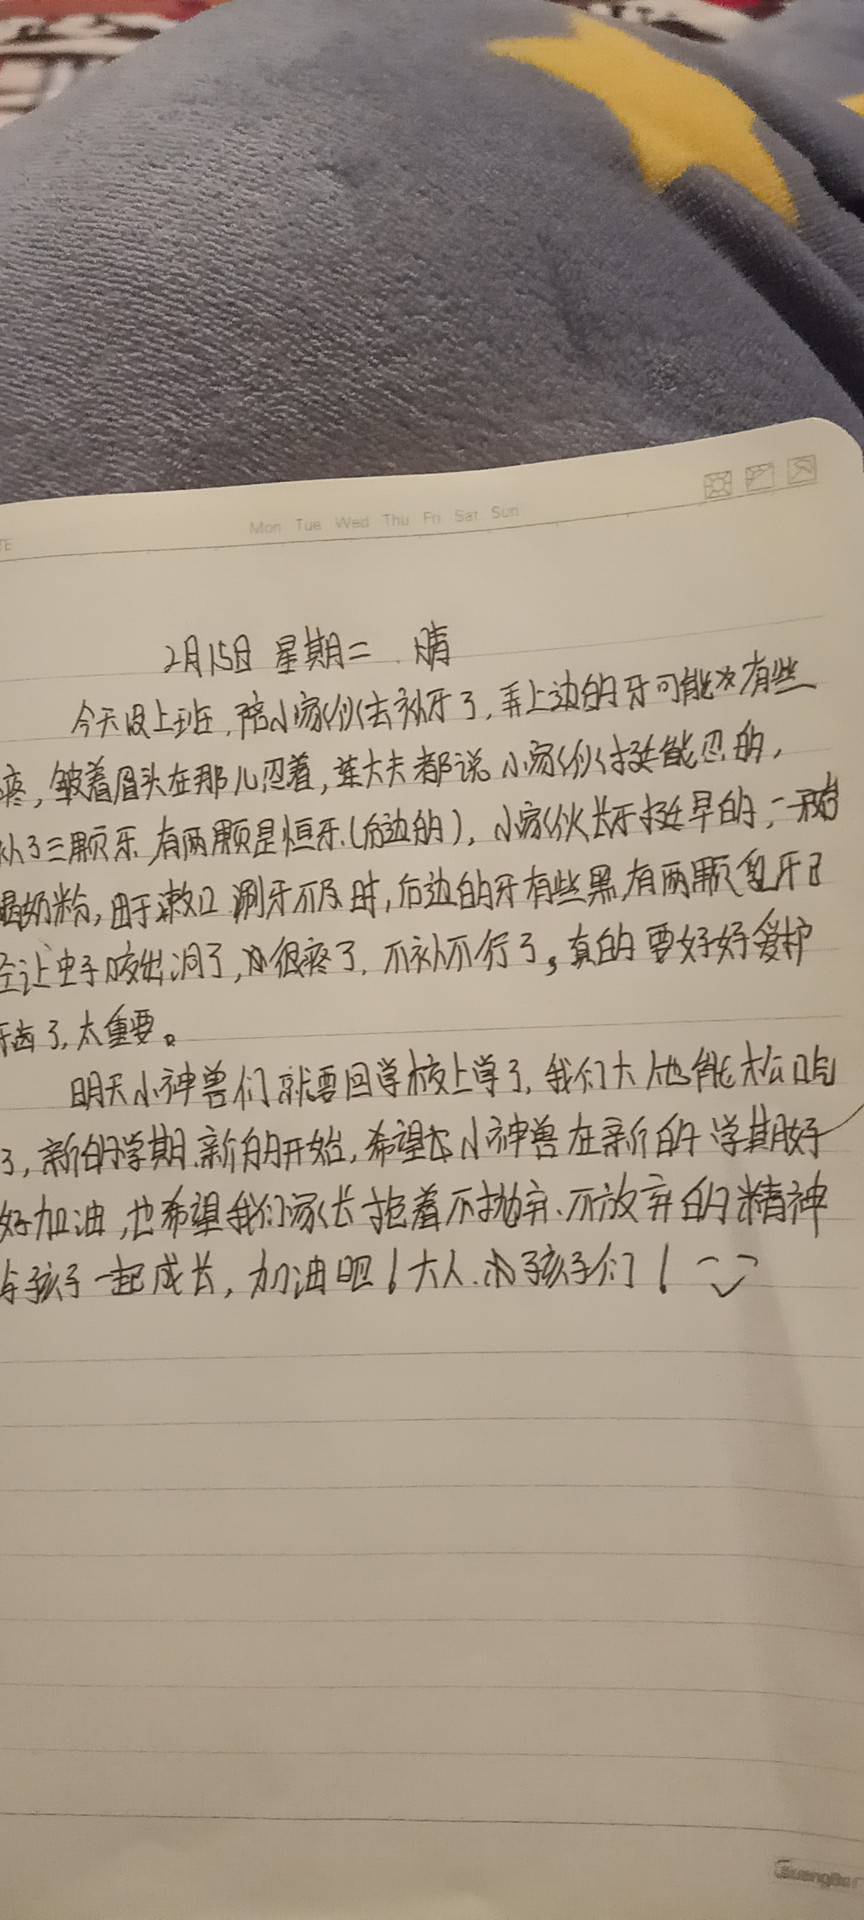 TE
Mon Tue Wed Thu Fri Sat Sun
2月15日 星期二 晴
今天没上班,陪小家伙去补牙了,弄上边的牙可能有些
疼,皱着眉头在那儿忍着,连大夫都说小家伙挺能忍的,
补了三颗牙,有两颗是恒牙.(后边的),小家伙长牙挺早的,一开始
喝奶粉,由于漱口涮牙不及时,后边的牙有些黑,有两颗乳牙已
经让虫子咬出洞了,很疼了,不补不行了,真的要好好爱护
牙齿了,太重要。
明天小神兽们就要回学校上学了,我们大人也能松口气
了,新的学期.新的开始,希望小神兽在新的学期好
好加油,也希望我们家长抱着不抛弃.不放弃的精神
与孩子一起成长,加油吧!大人.小孩子们!
GuangBo